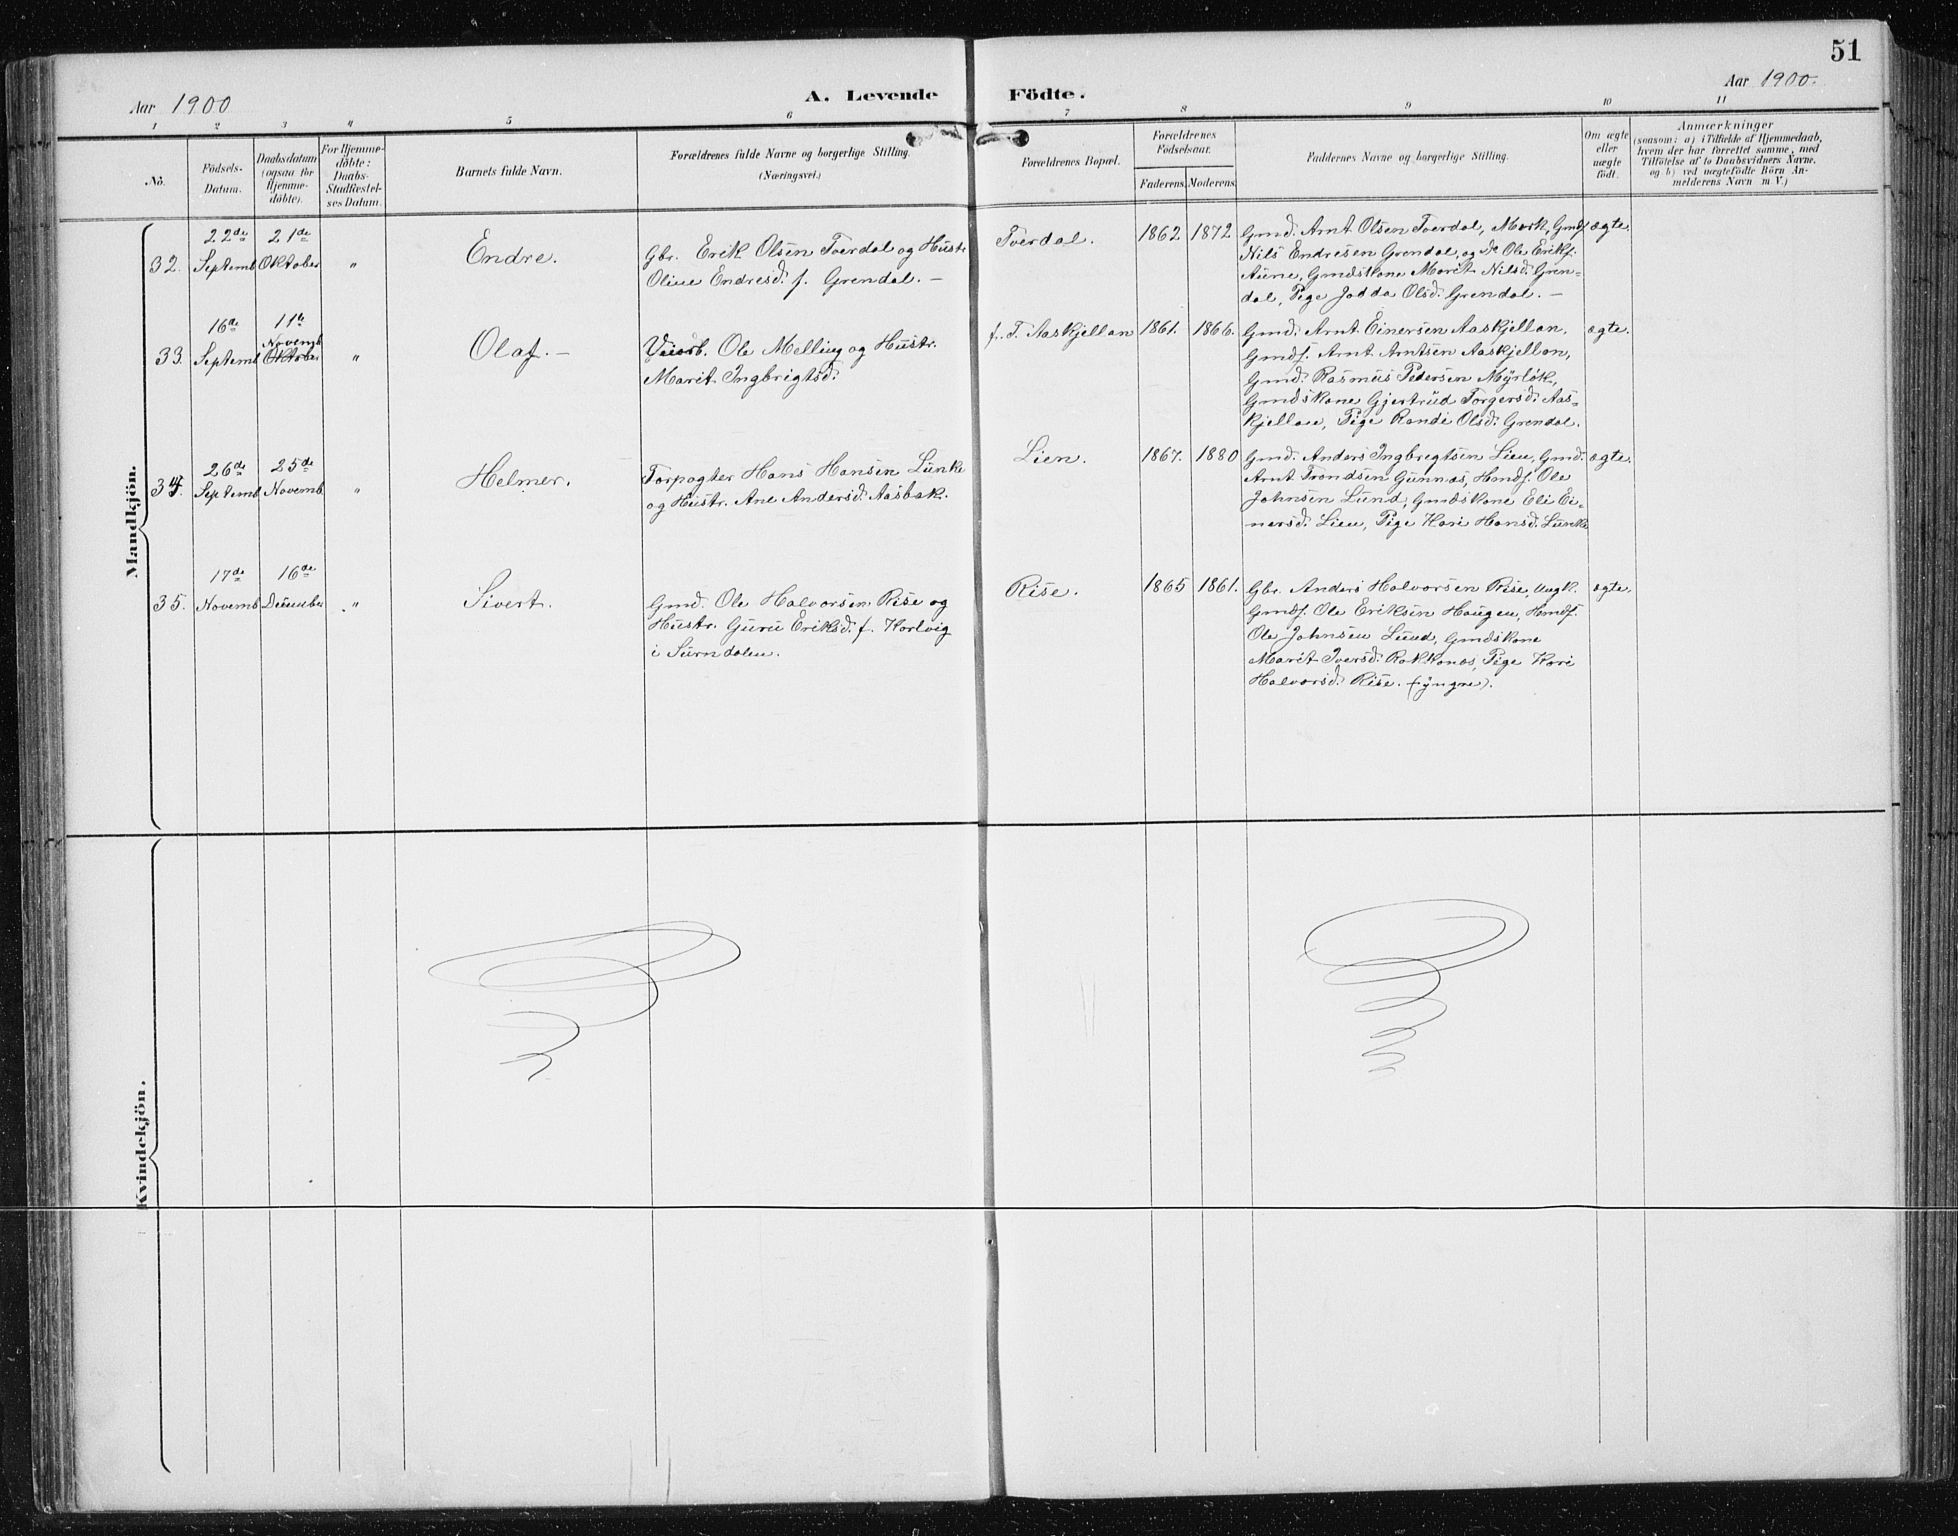 51
Aar 1900 A. Levende Födte. Aar 1900.
1 2 3 4 5 6 7 8 9 10 11
No.
Födsels-
Datum.
Daabsdatum
(ogsaa for
Hjemme-
döbte).
For Hjemme-
döbte:
Daabs-
Stadfæstel-
ses Datum.
Barnets fulde Navn.
Forældrenes fulde Navne og borgerlige Stilling.
(Næringsvei.)
Forældrenes Bopæl.
Forældrenes
Födselsaar.
Faderens. Moderens.
Faddernes Navne og borgerlige Stilling.
Om ægte
eller
uægte
födt.
Anmærkninger
(saasom: a) i Tilfælde af Hjemmedaab,
hvem der har forrettet samme, med
Tilföielse af to Daabsvidners Navne.
og b) ved uægtefödte Börn An-
melderens Navn m V.)
Mandkjön.
32.
22de
Septemb
21de
Oktober
"
Endre.
Gbr. Erik Olsen Tverdal og Hustr
Oline Endresd. f. Grendal. –
Tverdal.
1862 1872
Gmd. Arnt Olsen Tverdal, Mork, Gmdf
Nils Endresen Grendal, og Do Ole Eriks.
Aune, Gmdskone Marit Nilsd. Gren-
dal, Pige Jodda Olsd. Grendal. –
ægte.
33.
16de
Septemb
11te
Novemb
Oktober
"
Olaf. –
Ole Melling og Hustr.
Marit Ingbrigtsd.
f. T. Aaskjellan
1861. 1866.
Gmd. Arnt Einersen Aaskjellan,
Gmdf. Arnt Arntsen Aaskjellan,
Gmd. Rasmus Pedersen Myrløk,
Gmdskone Gjertrud Torgersd. Aas-
kjellan, Pige Randi Olsd. Grendal.
ægte.
34.
26de
Septemb
25de
Novemb
"
Helmer.
Forpagter Hans Hansen Lunke
og Hustr. Ane Andersd. Aasbak.
Lien.
1867. 1880
Gmd. Anders Ingbregtsen Lien, Gmd.
Arnt Trondsen Gunnæs, Hmdf. Ole
Johnsen Lund, Gmdskone Eli Ei-
nersd. Lien, Pige Kari Hansd. Lunke
ægte.
35.
17de
Novemb
16de
December
"
Sivert.
Gmd. Ole Halvorsen Rise og
Hustr. Guru Eriksd. f. Harlvig
i Surndalen.
Rise.
1865 1861.
Gbr. Anders Halvorsen Rise, Ungk.
Gmdf. Ole Eriksen Haugen, Hmdf.
Ole Johnsen Lund, Gmdskone
Marit Iversd. Rokkones, Pige Kari
Halvorsd. Rise. (yngre).
ægte.
Kvindekjön.